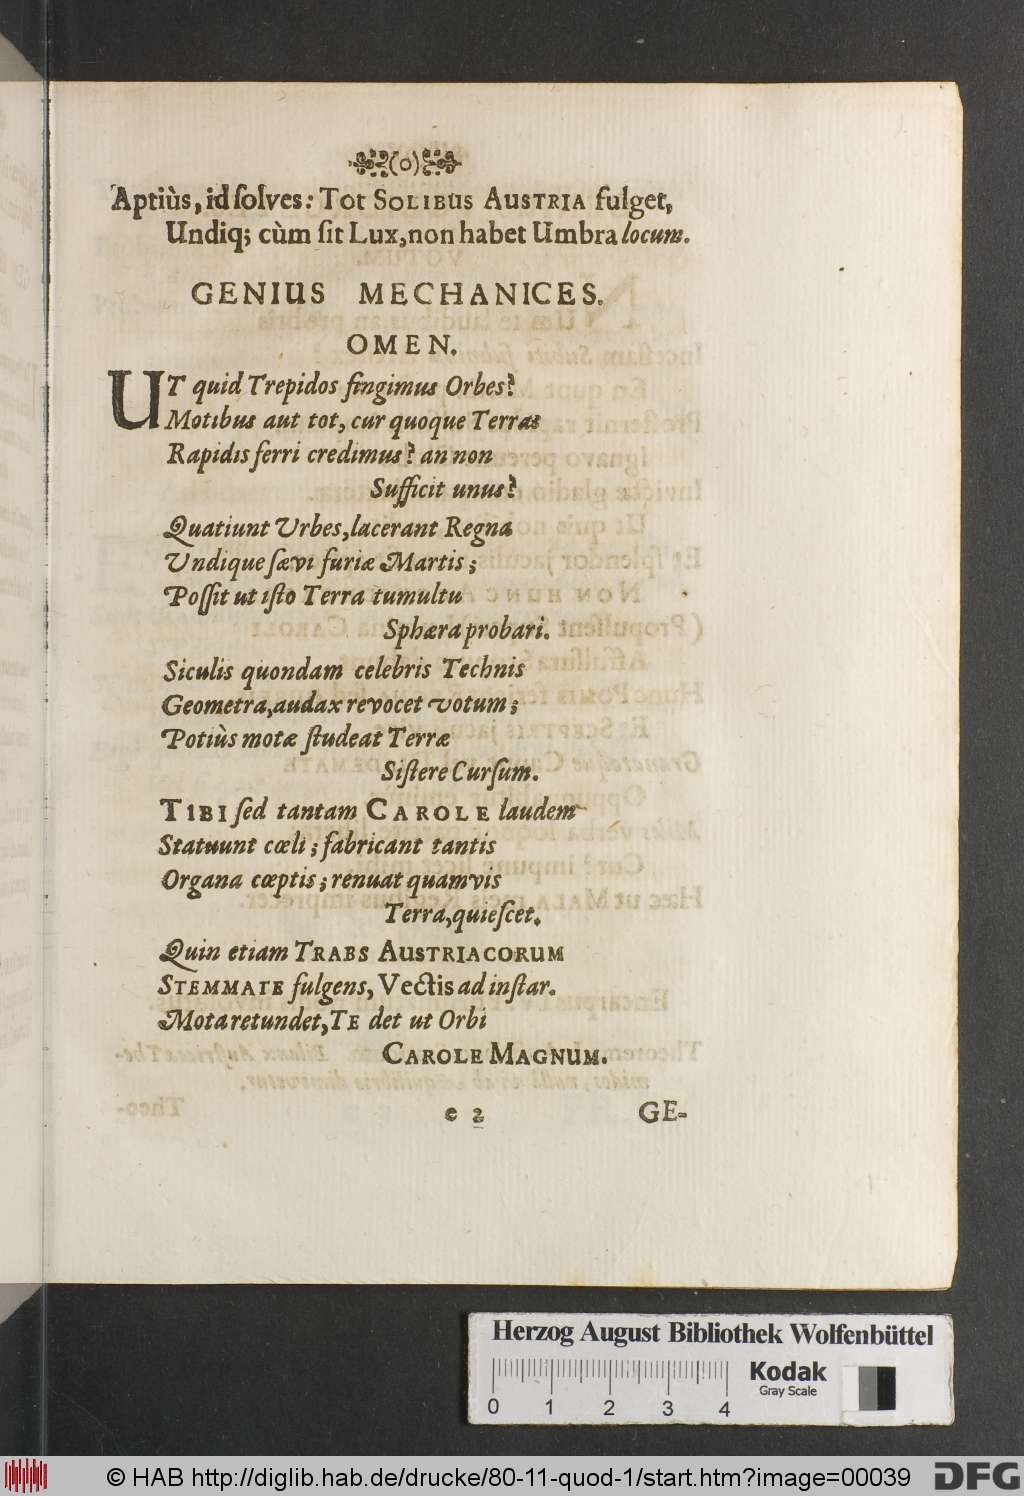 (o)
Aptiùs, id ſolves: Tot SOLIBUS AUSTRIA fulget,
Undiq; cùm ſit Lux, non habet Umbra locum.
GENIUS MECHANICES.
OMEN.
UT quid Trepidos fingimus Orbes?
Motibus aut tot, cur quoque Terras
Rapidis ferri credimus? an non
Sufficit unus?
Quatiunt Urbes, lacerant Regna
Undique ſævi furiæ Martis;
Poſſit ut iſto Terra tumultu
Sphæra probari.
Siculis quondam celebris Technis
Geometra, audax revocet votum;
Potiùs motæ ſtudeat Terræ
Siſtere Curſum.
TIBI ſed tantam CAROLE laudem
Statuunt cœli; fabricant tantis
Organa cœptis; renuat quamvis
Terra, quieſcet.
Quin etiam TRABS AUSTRIACORUM
STEMMATE fulgens, Vectis ad inſtar.
Mota retundet, TE det ut Orbi
CAROLE MAGNUM.
e 2 GE-
Herzog August Bibliothek Wolfenbüttel
Kodak
Gray Scale
0 1 2 3 4
© HAB http://diglib.hab.de/drucke/80-11-quod-1/start.htm?image=00039
DFG